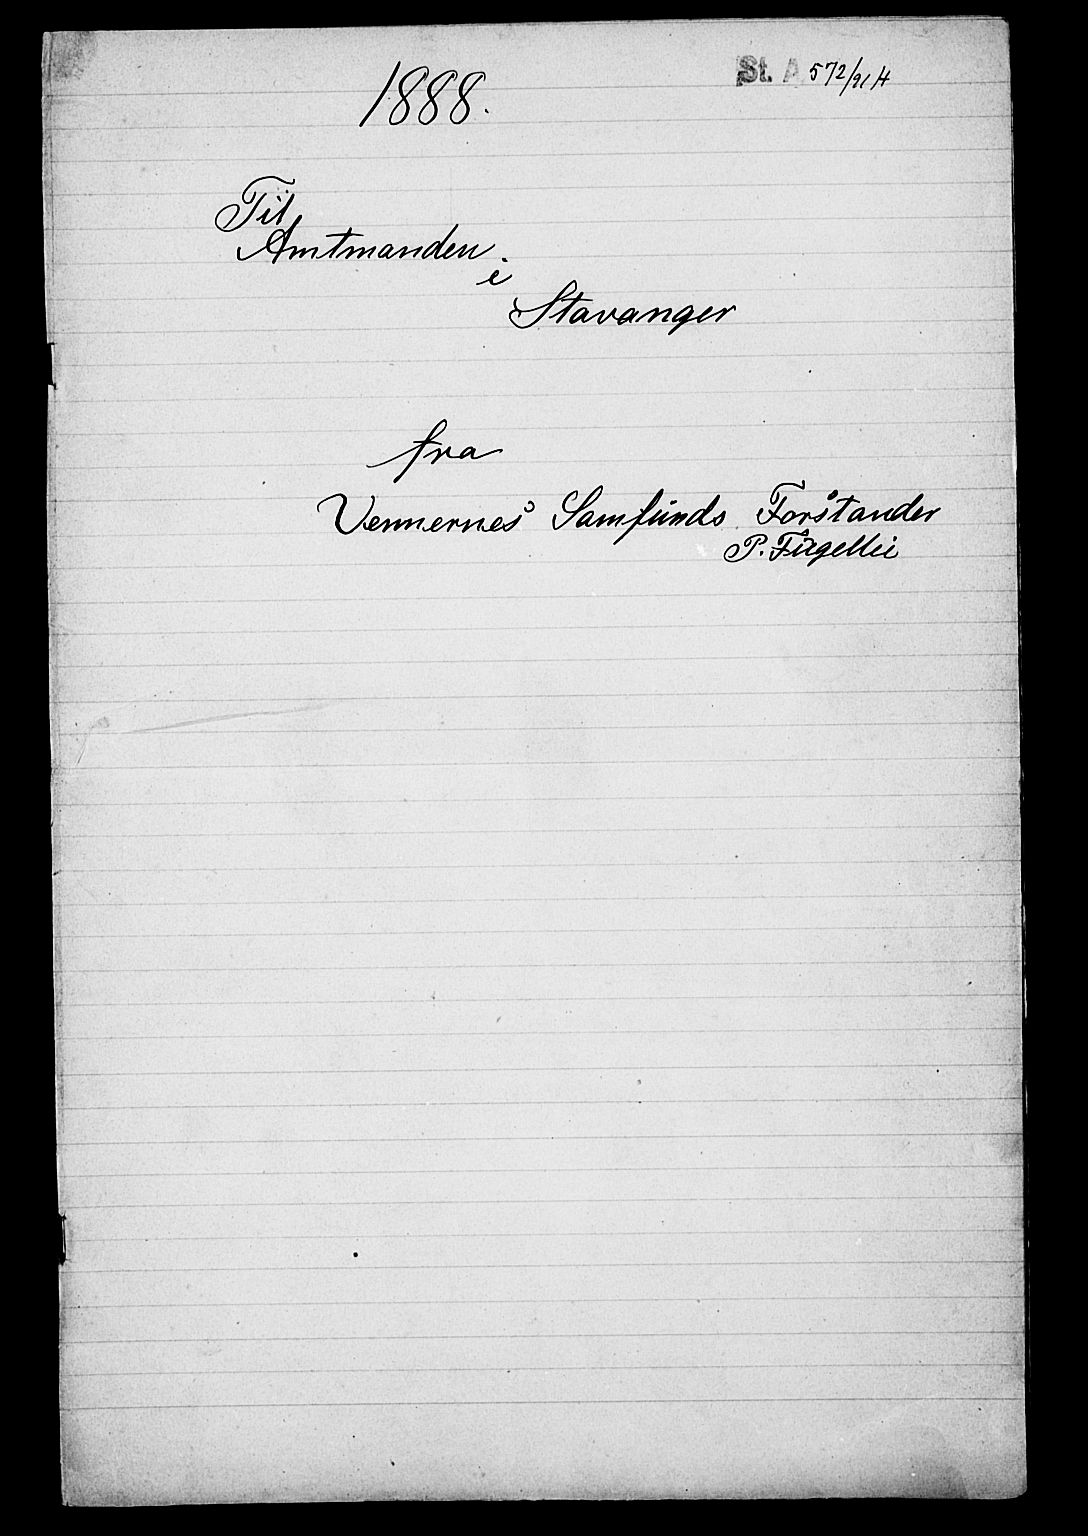 1888.
St. A 572/91 H
Til
Amtmanden
i
Stavanger
fra
Vennernes Samfunds Forstander
P. Fugellie